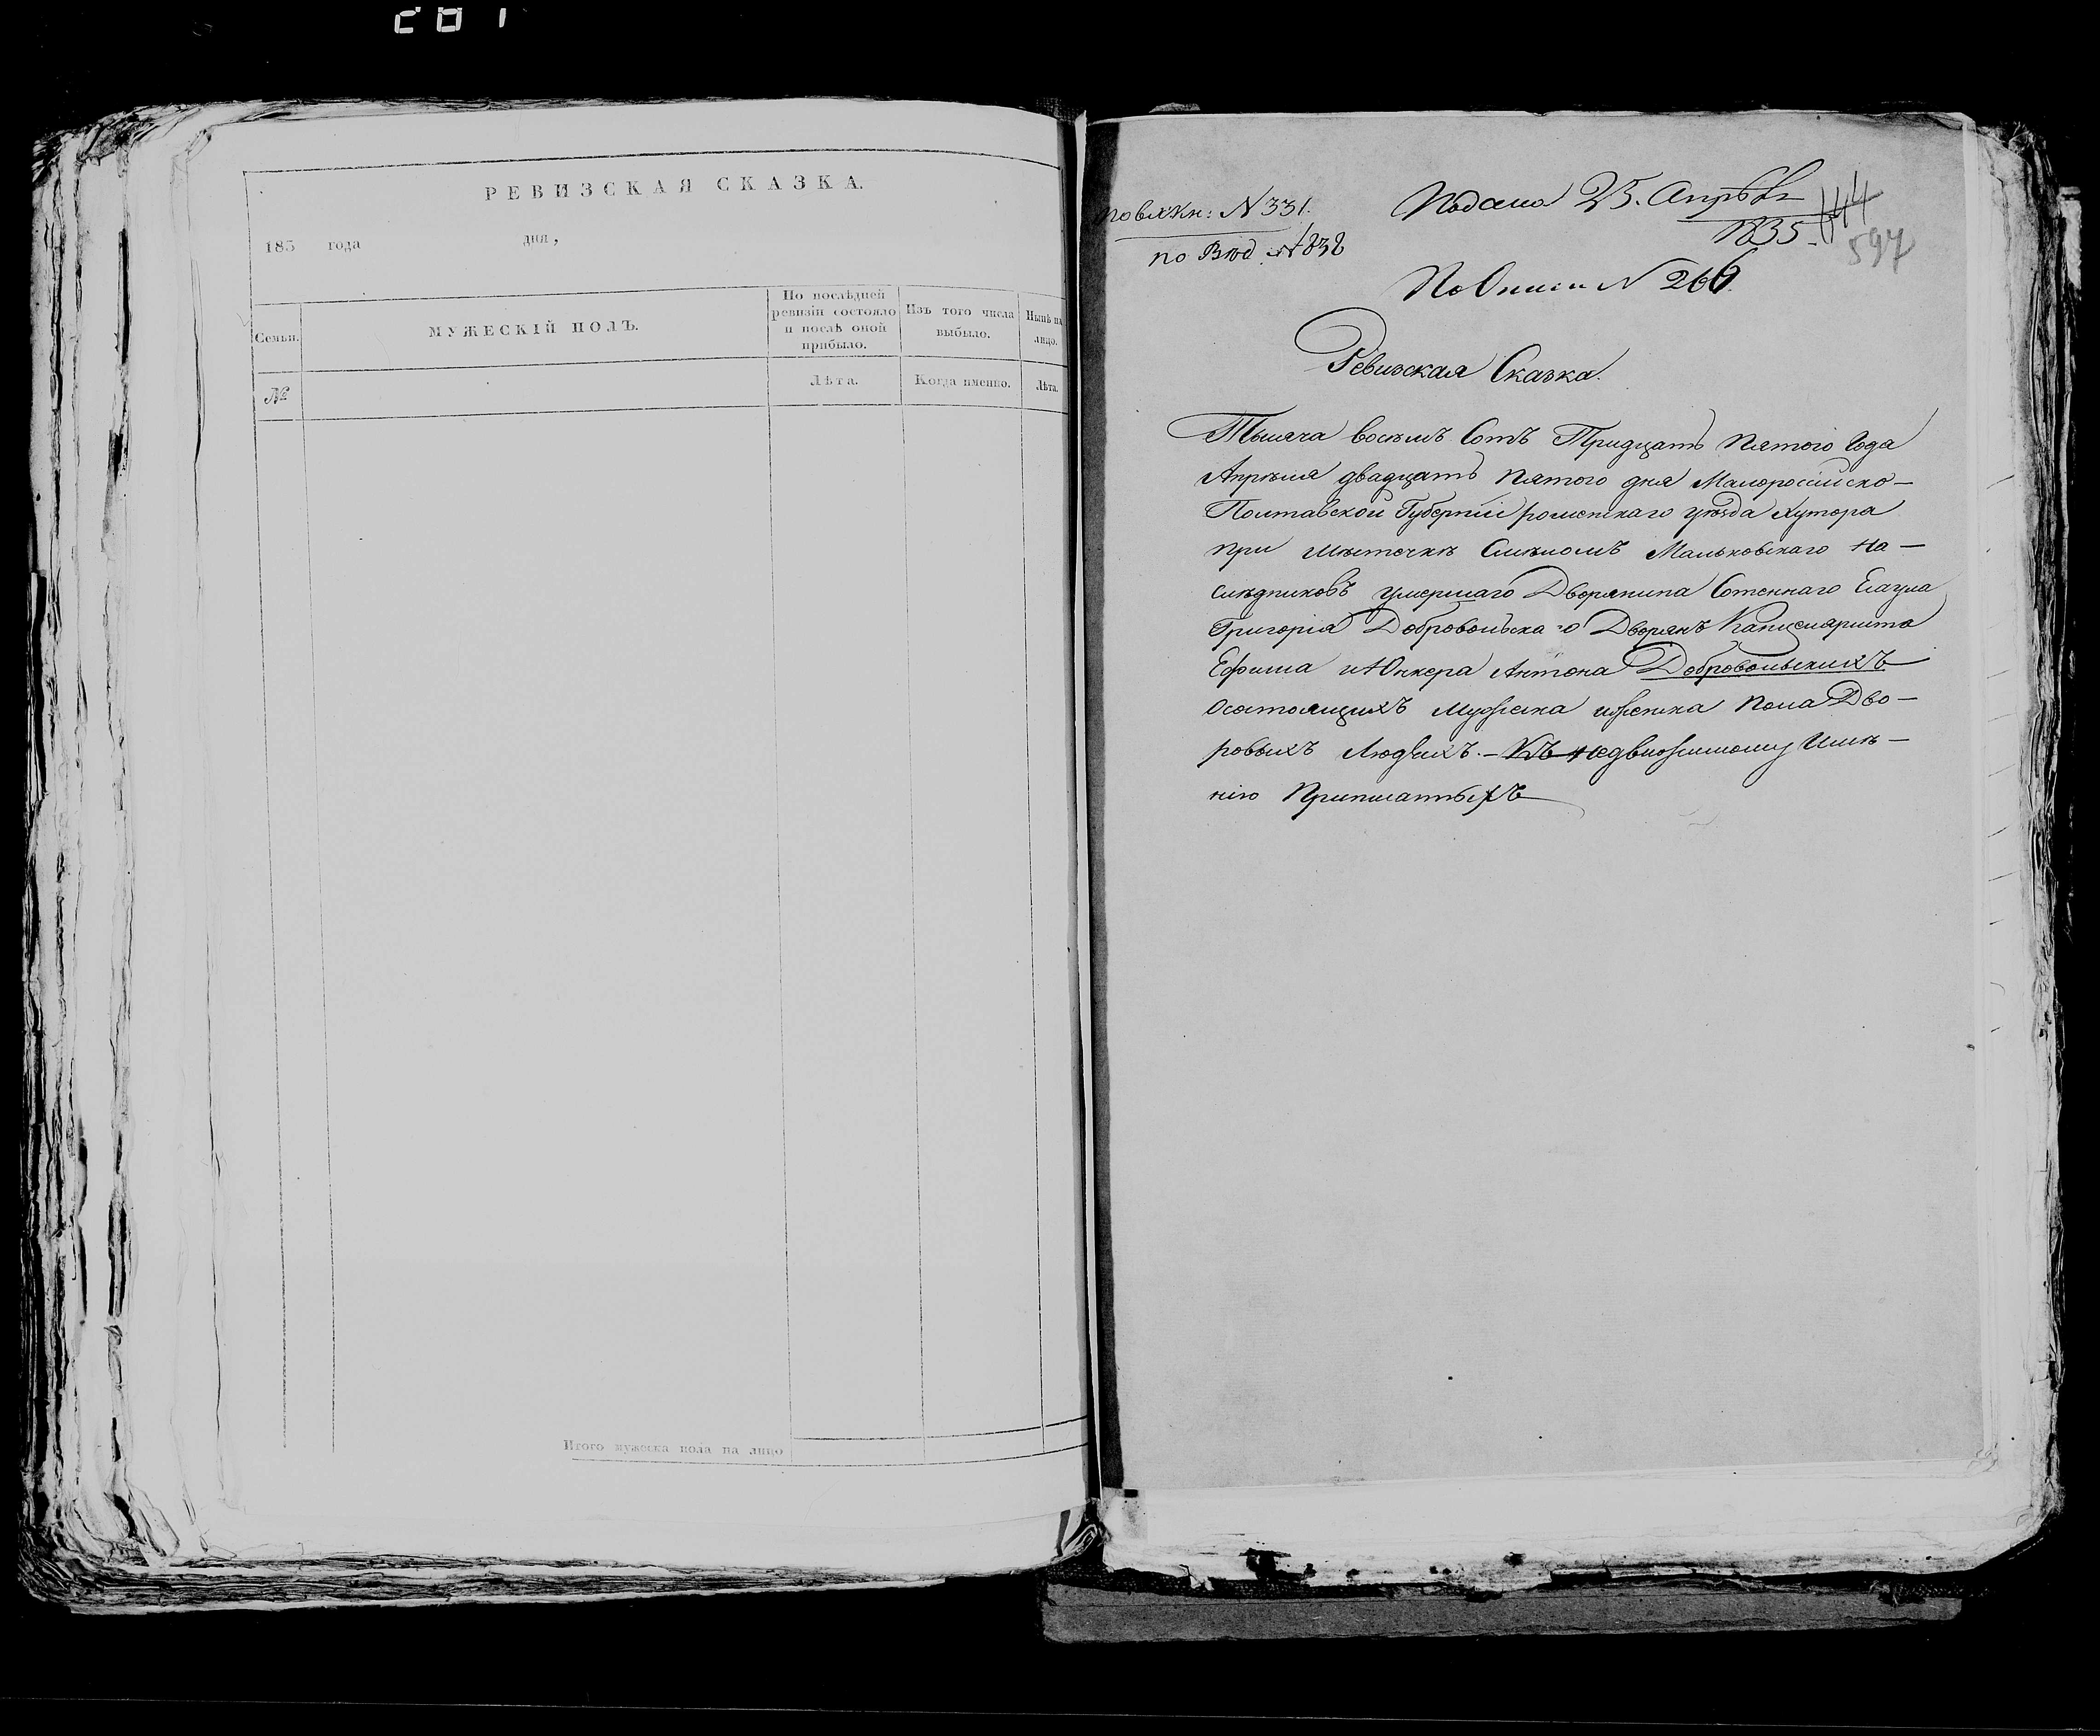 РЕВИЗСКАЯ СКАЗКА.
183 года дня,
Семьи.
МУЖЕСКІЙ ПОЛЪ.
По послѣдней ревизіи состояло и послѣ оной прибыло.
Изъ того числа выбыло.
Нынѣ на лицо.
№
Лѣта.
Когда именно.
Лѣта.
Итого мужеска пола на лицо
по вх Кн: N 331.
по Ввд. N 838
Подана 25. Апрѣля
1835.
144
597
По Описи N 266.
Ревизская Сказка.
Тысяча восемъ Сотъ Тридцать Пятого Года
Апрѣля двадцать Пятого дня Малороссійско-
Полтавской Губерніи роменскаго уѣзда Хутора
при мѣсточкѣ Смѣломъ Мальковскаго На-
слѣдниковъ умершаго Дворянина Сотеннаго Есаула
Григорія Добровольскаго Дворянъ Канцеляриста
Ефима и Юнкера Антона Добровольскихъ
Осостоящихъ Мужеска иженска Пола Дво-
ровыхъ Людяхъ. - Къ недвижимому Имѣ-
нію Приписанныхъ